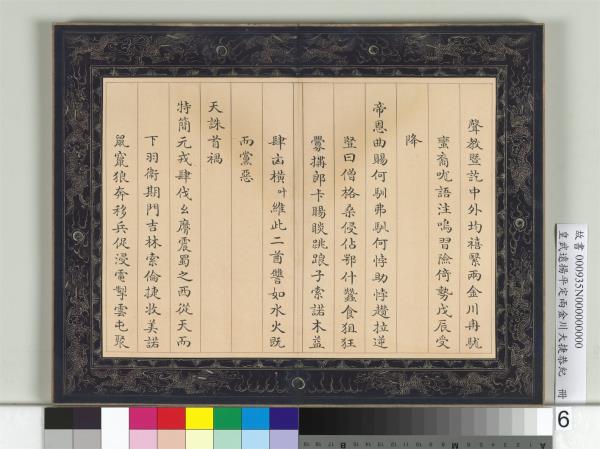 聲教暨訖中外均禧緊兩金川冉駹
蠻裔咙語注嗚習險倚勢戊辰受
降
帝恩曲賜何馴弗馴何悖助悖攢拉逆
豎曰僧格桑侵佔鄂什蠶食狙狂
釁搆郎卡賜睒跳踉子索諾木益
肆凶橫叶維此二首讐如水火既
而黨惡
天誅首禍
特簡元戎肆伐么膺震蜀之西從天而
下羽衛期門吉林索倫捷收美諾
鼠竄狼奔移兵促浸電掣雲屯聚
故書 000935N000000000
皇武遠揚平定兩金川大捷恭紀 冊
6